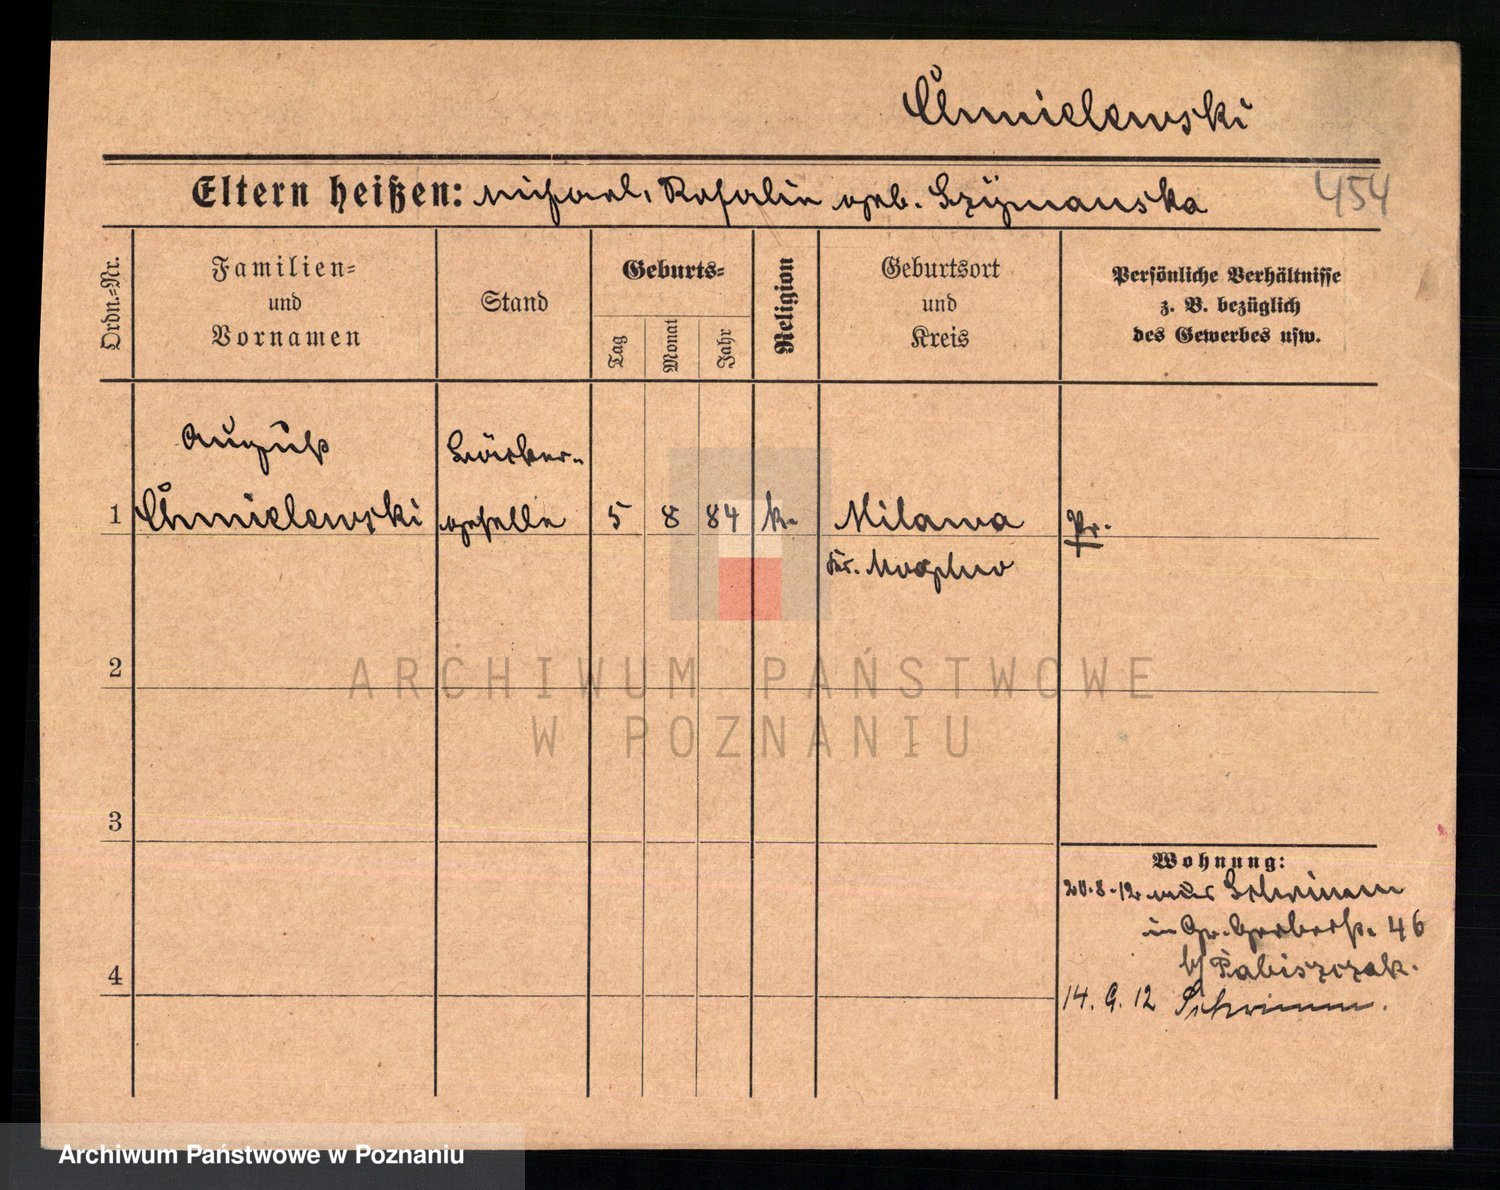 Chmielewski
Eltern heißen: Michael, Rosalie geb. Szÿmanska
454
Ordn.=Nr.
Familien=
und
Vornamen
Stand
Geburts=
Tag
Monat
Jahr
Religion
Geburtsort
und
Kreis
Persönliche Verhältnisse
z. B. bezüglich
des Gewerbes usw.
August
Chmielewski
geselle
1
5
8
84
k.
Milawa
Kr. Mogilno
Pr.
2
ARCHIWUM PAŃSTWOWE
W POZNANIU
3
Wohnung:
20.8.12 aus Schrimm
in Gr. Gerberst. 46
b/ Pabiszczak.
4
14. 9. 12 Schrimm.
Archiwum Państwowe w Poznaniu